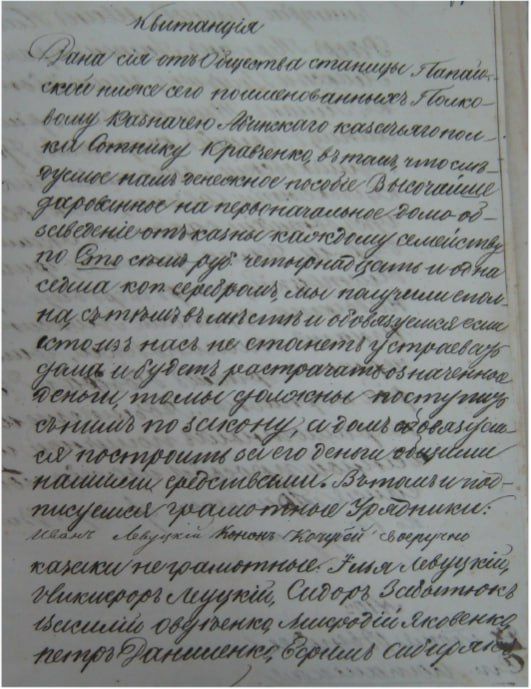 Квитанція
Дана сія отъ Общества станицы Папай-
ской ниже сего поименованныхъ Полко-
вому Казначею Абинскаго казачьяго пол-
ка Сотнику Кравченко, въ томъ, что слѣ-
дуемое намъ денежное пособіе Высочайше
дарованное на первоначальное домо об-
заведеніе отъ казны каждому семейству
по Сто семь руб четырнадцать и одна
седма коп серебромъ, мы получили спол-
на, съ тѣмъ вмѣстѣ и обовязуемся если
кто изъ насъ не станетъ устроевать
дома и будетъ растрачать означенное
деньги, то мы должны поступить
съ нимъ по закону, а домъ обовязуем-
ся построить за его деньги общими
нашими средствами. Въ томъ и под-
писуемся грамотные Урядники:
Иванъ Левуцкій Кононъ Кочерей своеручно
казаки не грамотные: Илья Левуцкій,
Никифоръ Леуцкій, Сидоръ Забытюкъ
Василій Овученко, Мифодій Яковенко,
Петръ Даниленко, Ефимъ Сибиряко